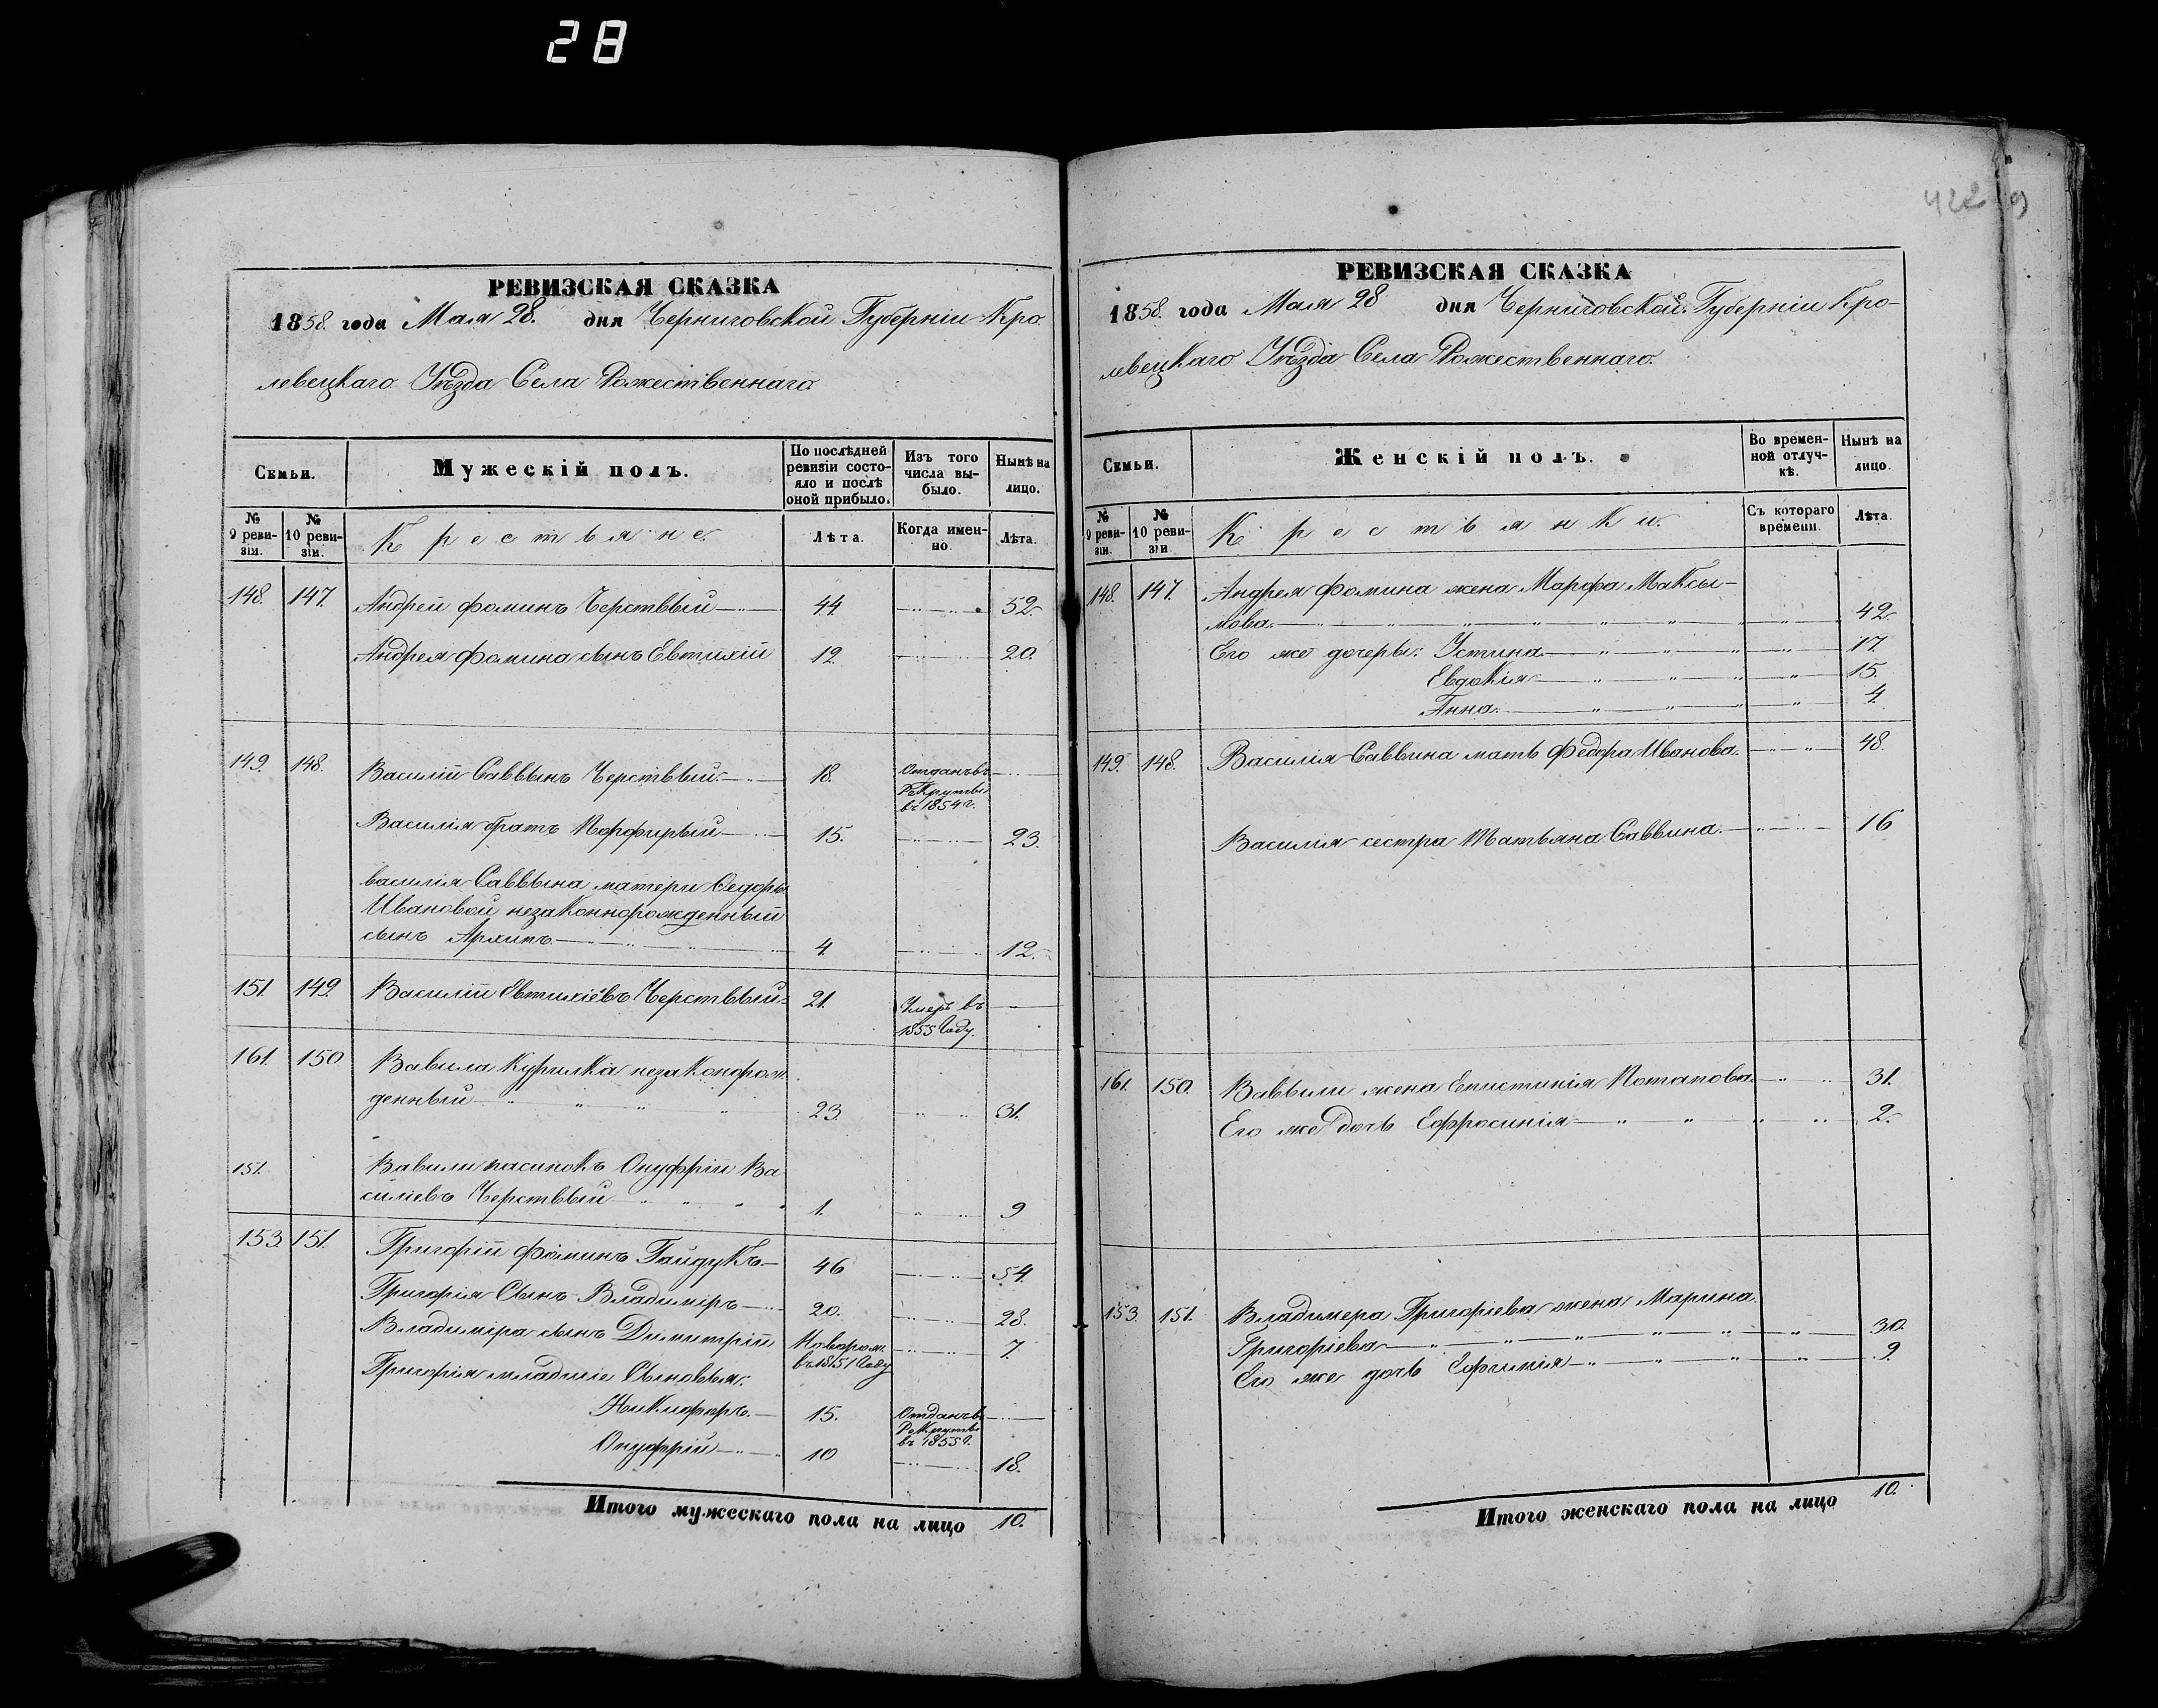 28
РЕВИЗСКАЯ СКАЗКА
1858. года Мая 28. дня Черниговской Губерніи Кро
левецкаго Уѣзда Села Рожественнаго
Семьи.
Мужескій полъ.
По послѣдней ревизіи состояло и послѣ оной прибыло.
Изъ того числа выбыло.
Нынѣ на лицо.
№ 9 ревизіи.
№ 10 ревизіи.
Крестьяне.
Лѣта.
Когда именно.
Лѣта.
148. 147. Андрей Фоминъ Черствый 44. 52.
Андрея Фомина сынъ Евтихій 12. 20.
149. 148. Василій Саввынъ Черствый. 18. Отданъ въ
Рекруты
въ 1854 г.
Василія братъ Порфирый 15. 23.
василія Саввына матери Федоры
Ивановой незаконнорожденный
сынъ Архипъ 4. 12.
151. 149. Василій Евтихіевъ Черствый 21. Умеръ въ
1855 Году.
161. 150 Вавила Курилка незаконрож
денный 23 31.
151. Вавили пасинокъ Онуфрій Ва
силіевъ Черствый 1. 9
153. 151. Григорій Фоминъ Гайдукъ 46 54.
Григорія Сынъ Владиміръ 20. 28.
Владиміра сынъ Димитрій Новорож.
въ 1851 Году 7.
Григорія младшіе Сыновья:
Никифоръ. 15. Отданъ въ
Рекруты
въ 1855 г.
Онуфрій 10 18.
Итого мужескаго пола на лицо 10.
422
РЕВИЗСКАЯ СКАЗКА
1858. года Мая 28 дня Черниговской Губерніи Кро-
левецкаго Уѣзда Села Рожественнаго.
Семьи.
Женскій полъ.
Во временной отлучкѣ.
Нынѣ на лицо.
№ 9 ревизіи.
№ 10 ревизіи.
Крестьянки.
Съ котораго времени.
Лѣта.
148. 147. Андрея Фомина жена Марфа Максы-
мова. 42.
Его же дочеры: Устина 17.
Евдокія 15.
Анна. 4.
149. 148. Василія Саввина мать Федора Иванова. 48.
Василія сестра Татьяна Саввина. 16
161. 150. Вавили жена Епистинія Потапова 31.
Его же дочь Ефросинія 2.
153 151. Владимера Григоріева жена Марина
Григоріева 30.
Его же дочь Ефимія 9.
Итого женскаго пола на лицо 10.